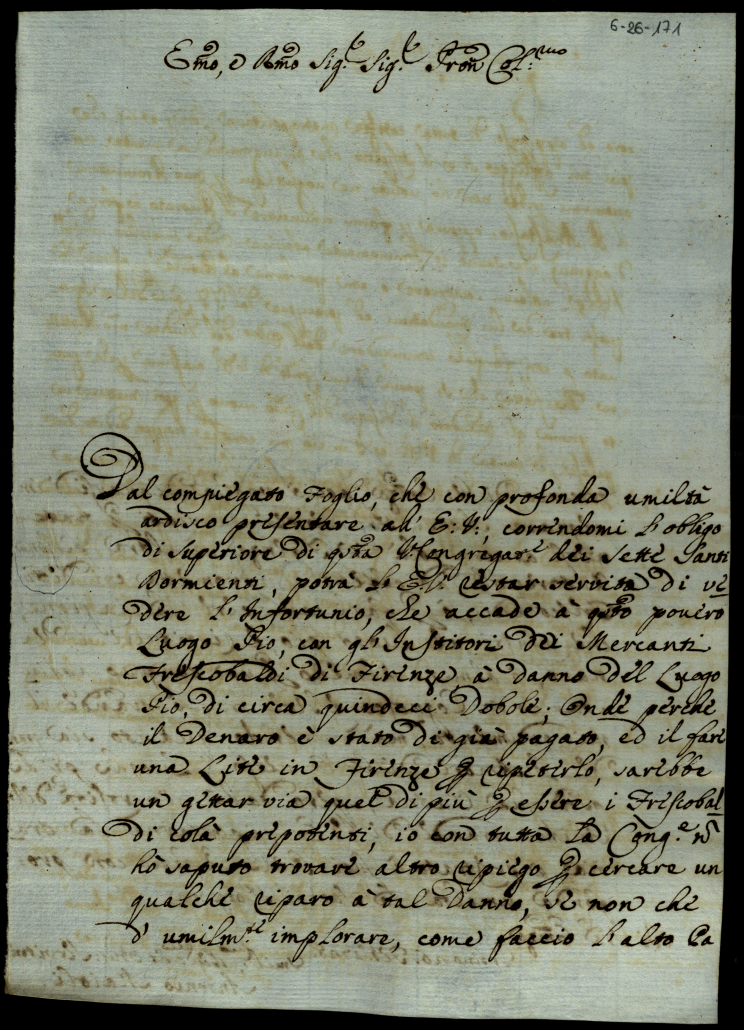 6-26-171
Emo, e Rmo Sig.r Sig.r Pron Col:mo
Dal compiegato Foglio, che con profonda umiltà
ardisco presentare all' E: V:, correndomi l'obligo
di Superiore di qsta Congregaz.e dei Sette Santi
Dormienti, potrà l'E.V. restar servita di ve
dere l'Infortunio, che accade à qsto povero
Luogo Pio, con gl'Institori dei Mercanti
Frescobaldi di Firenze à danno del Luogo
Pio, di circa quindeci Dobole; Onde perche
il Denaro è stato di già pagato, ed il fare
una Lite in Firenze p ripeterlo, sarebbe
un gettar via quel di più p essere i Frescobal
di colà prepotenti, io con tutta la Cong.e ñ
hò saputo trovare altro ripiego p cercare un
qualche riparo à tal Danno, se non che
d' umilm.te implorare, come faccio l'alto Pa